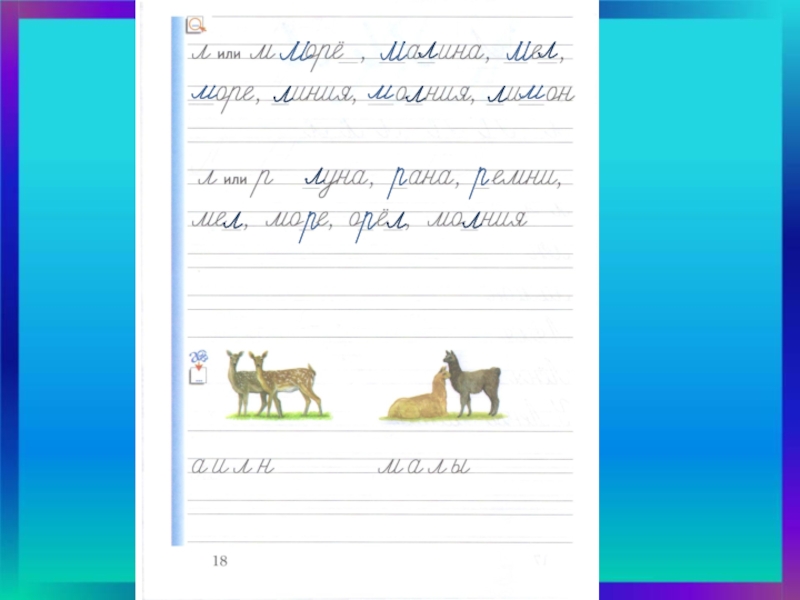 л или м морё_, малина, мел,
море, линия, молния, лимон
л или р луна, рана, ремни,
мел, море, орёл, молния
а и л н м а л ы
18